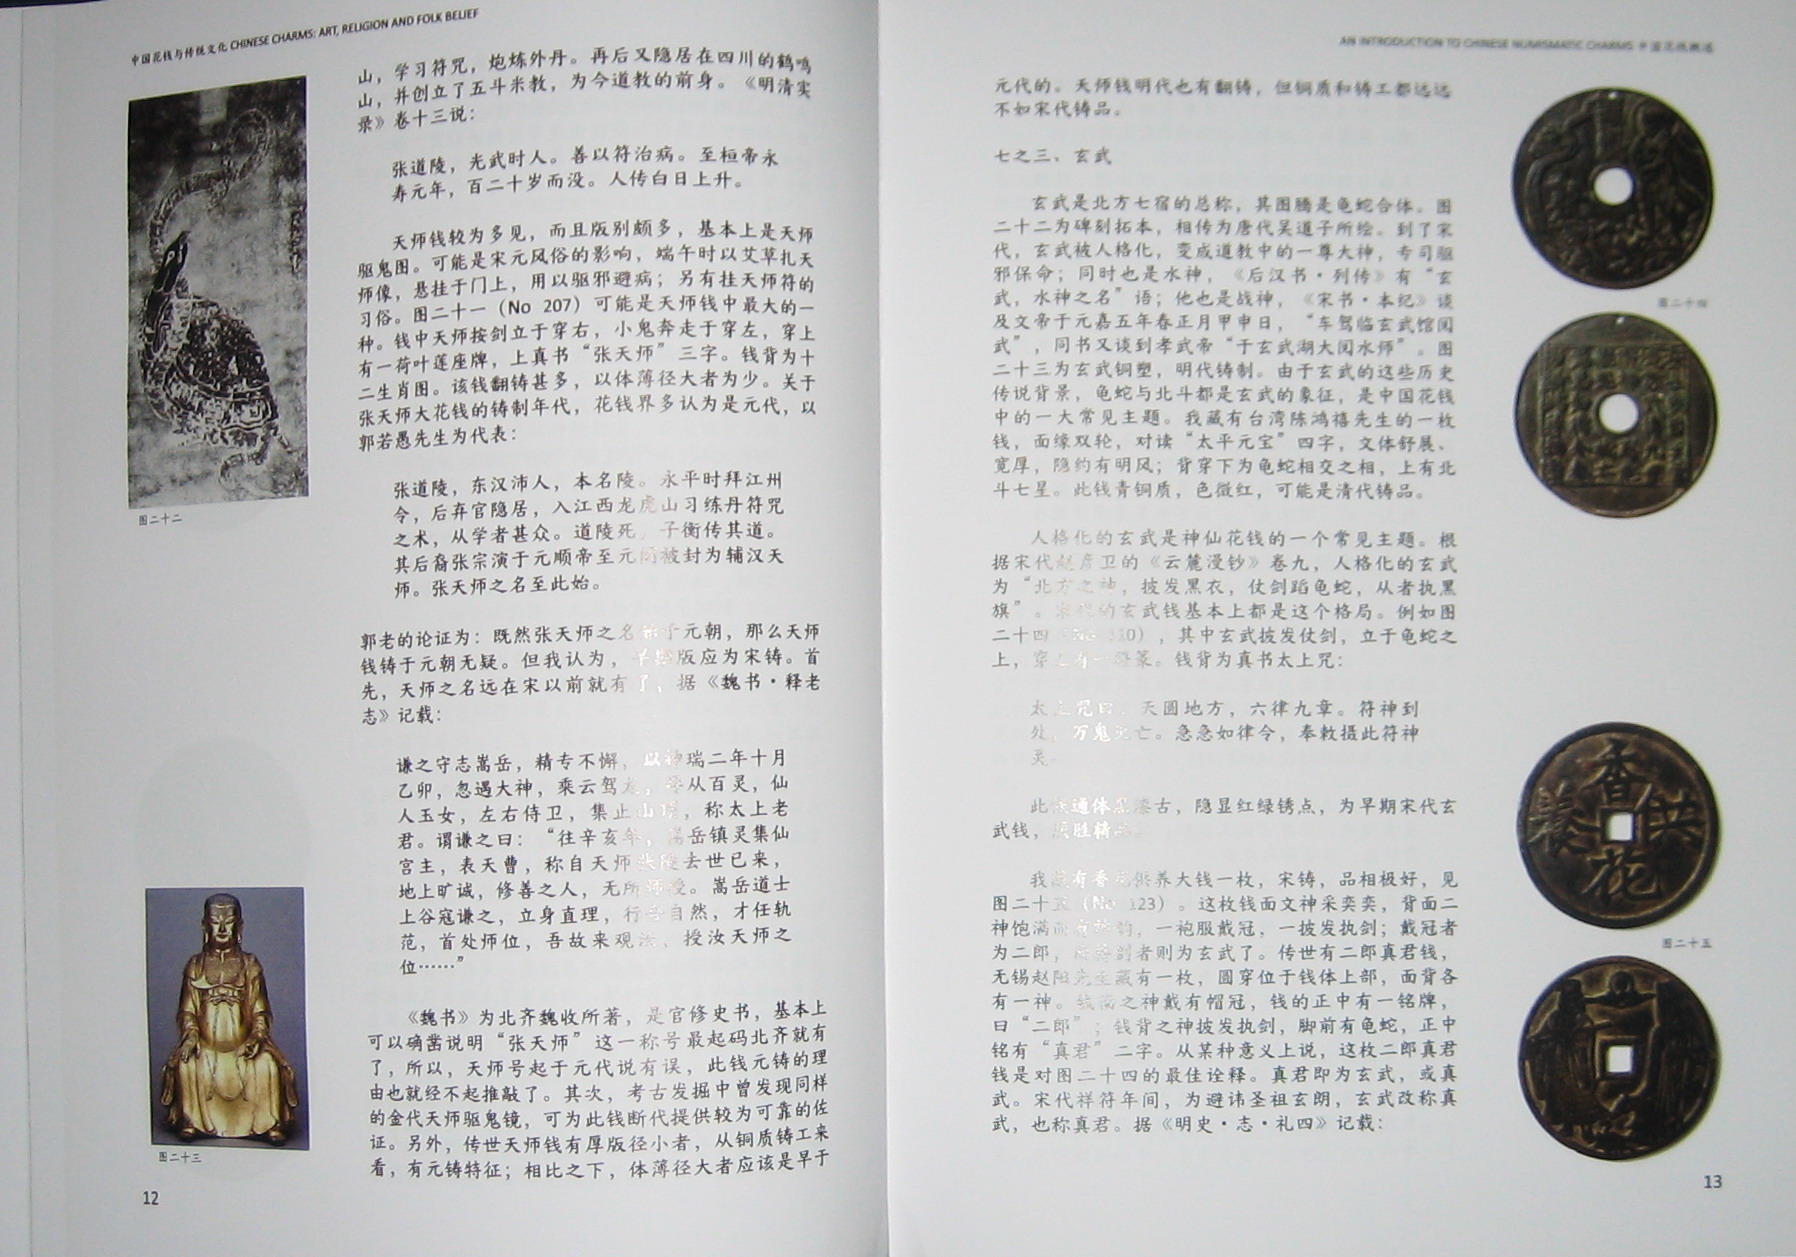 中国花钱与传统文化 CHINESE CHARMS: ART, RELIGION AND FOLK BELIEF
山，学习符咒，炮炼外丹。再后又隐居在四川的鹤鸣
山，并创立了五斗米教，为今道教的前身。《明清实
录》卷十三说：
张道陵，光武时人。善以符治病。至桓帝永
寿元年，百二十岁而没。人传白日上升。
天师钱较为多见，而且版别颇多，基本上是天师
驱鬼图。可能是宋元风俗的影响，端午时以艾草扎天
师像，悬挂于门上，用以驱邪避病；另有挂天师符的
习俗。图二十一（No 207）可能是天师钱中最大的一
种。钱中天师按剑立于穿右，小鬼奔走于穿左，穿上
有一荷叶莲座牌，上真书“张天师”三字。钱背为十
二生肖图。该钱翻铸甚多，以体薄径大者为少。关于
张天师大花钱的铸制年代，花钱界多认为是元代，以
郭若愚先生为代表：
张道陵，东汉沛人，本名陵。永平时拜江州
令，后弃官隐居，入江西龙虎山习练丹符咒
之术，从学者甚众。道陵死，子衡传其道。
其后裔张宗演于元顺帝至元间被封为辅汉天
师。张天师之名至此始。
郭老的论证为：既然张天师之名始于元朝，那么天师
钱铸于元朝无疑。但我认为，早期版应为宋铸。首
先，天师之名远在宋以前就有了，据《魏书·释老
志》记载：
谦之守志嵩岳，精专不懈，以神瑞二年十月
乙卯，忽遇大神，乘云驾龙，导从百灵，仙
人玉女，左右侍卫，集止山顶，称太上老
君。谓谦之曰：“往辛亥年，嵩岳镇灵集仙
宫主，表天曹，称自天师张陵去世已来，
地上旷诚，修善之人，无所师授。嵩岳道士
上谷寇谦之，立身直理，行合自然，才任轨
范，首处师位，吾故来观汝，授汝天师之
位……”
《魏书》为北齐魏收所著，是官修史书，基本上
可以确凿说明“张天师”这一称号最起码北齐就有
了，所以，天师号起于元代说有误，此钱元铸的理
由也就经不起推敲了。其次，考古发掘中曾发现同样
的金代天师驱鬼镜，可为此钱断代提供较为可靠的佐
证。另外，传世天师钱有厚版径小者，从铜质铸工来
看，有元铸特征；相比之下，体薄径大者应该是早于
图二十二
图二十三
12
AN INTRODUCTION TO CHINESE NUMISMATIC CHARMS 中国花钱概述
元代的。天师钱明代也有翻铸，但铜质和铸工都远远
不如宋代铸品。
七之三、玄武
玄武是北方七宿的总称，其图腾是龟蛇合体。图
二十二为碑刻拓本，相传为唐代吴道子所绘。到了宋
代，玄武被人格化，变成道教中的一尊大神，专司驱
邪保命；同时也是水神，《后汉书·列传》有“玄
武，水神之名”语；他也是战神，《宋书·本纪》谈
及文帝于元嘉五年春正月甲申日，“车驾临玄武馆阅
武”，同书又谈到孝武帝“于玄武湖大阅水师”。图
二十三为玄武铜塑，明代铸制。由于玄武的这些历史
传说背景，龟蛇与北斗都是玄武的象征，是中国花钱
中的一大常见主题。我藏有台湾陈鸿禧先生的一枚
钱，面缘双轮，对读“太平元宝”四字，文体舒展、
宽厚，隐约有明风；背穿下为龟蛇相交之相，上有北
斗七星。此钱青铜质，色微红，可能是清代铸品。
人格化的玄武是神仙花钱的一个常见主题。根
据宋代赵彦卫的《云麓漫钞》卷九，人格化的玄武
为“北方之神，披发黑衣，仗剑蹈龟蛇，从者执黑
旗”。宋代的玄武钱基本上都是这个格局。例如图
二十四（No 110），其中玄武披发仗剑，立于龟蛇之
上，穿上有一符篆。钱背为真书太上咒：
太上咒曰，天圆地方，六律九章。符神到
处，万鬼灭亡。急急如律令，奉敕摄此符神
灵。
此钱通体黑漆古，隐显红绿锈点，为早期宋代玄
武钱，
我藏有香花供养大钱一枚，宋铸，品相极好，见
图二十五（No 123）。这枚钱面文神采奕奕，背面二
神饱满而有神韵，一袍服戴冠，一披发执剑；戴冠者
为二郎，而持剑者则为玄武了。传世有二郎真君钱，
无锡赵阳先生藏有一枚，圆穿位于钱体上部，面背各
有一神。钱面之神戴有帽冠，钱的正中有一铭牌，
曰“二郎”；钱背之神披发执剑，脚前有龟蛇，正中
铭有“真君”二字。从某种意义上说，这枚二郎真君
钱是对图二十四的最佳诠释。真君即为玄武，或真
武。宋代祥符年间，为避讳圣祖玄朗，玄武改称真
武，也称真君。据《明史·志·礼四》记载：
图二十四
香花
供養
图二十五
13